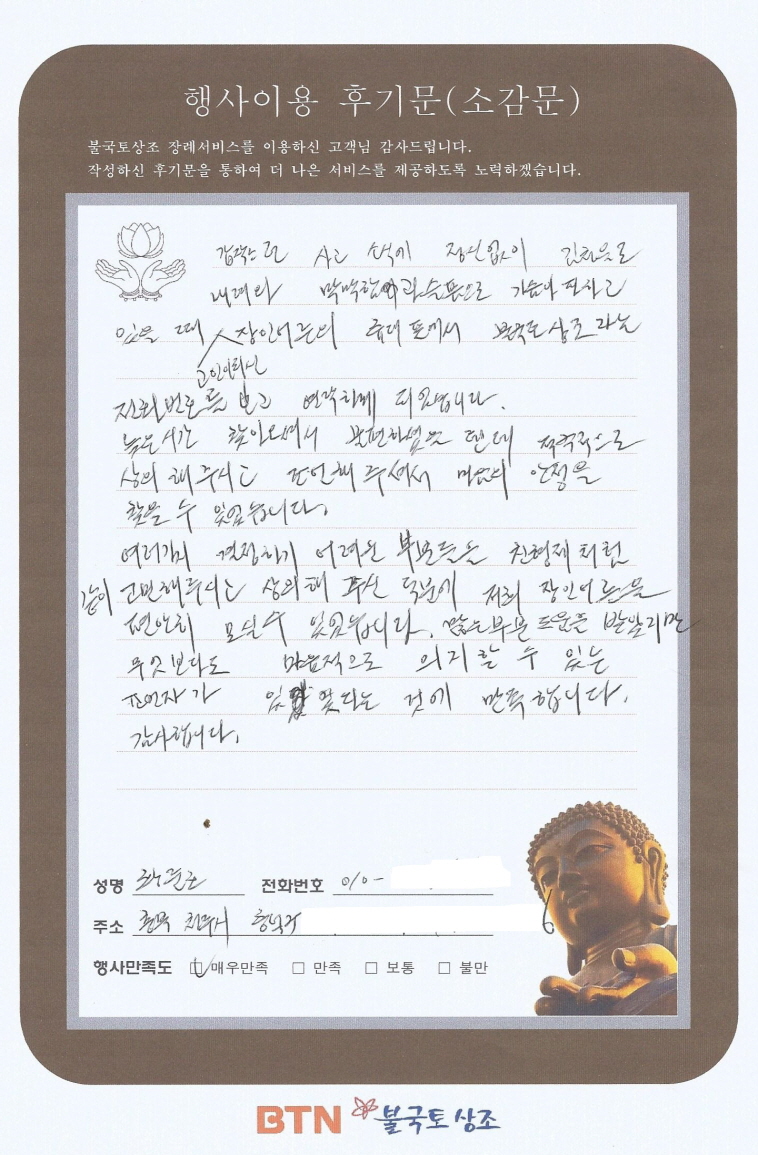 행사이용 후기문(소감문)
불국토상조 장례서비스를 이용하신 고객님 감사드립니다.
작성하신 후기문을 통하여 더 나은 서비스를 제공하도록 노력하겠습니다.
갑작스런 사고 소식에 정신없이
내려와 막막함과 슬픔으로 가슴이
있을 때 장인어른의 휴대폰에서 불국토상조라는
고인이되신
전화번호를 보고 연락하게 되었습니다.
늦은시간 찾아오셔서 불편하셨을 텐데 적극적으로
상의해주시고 조언해주셔서 마음의 안정을
찾을 수 있었습니다.
여러가지 결정하기 어려운 부분들을 친형제처럼
같이 고민해주시고 상의해 주신 덕분에 저희 장인어른을
편안히 모실수 있었습니다. 많은부분 도움을 받았지만
무엇보다도 마음적으로 의지할 수 있는
조언자가 있었다는 것에 만족합니다.
감사합니다.
성명 전화번호 010-
주소 충북 청주시 흥덕구
행사만족도 매우만족 만족 보통 불만
BTN 불국토상조